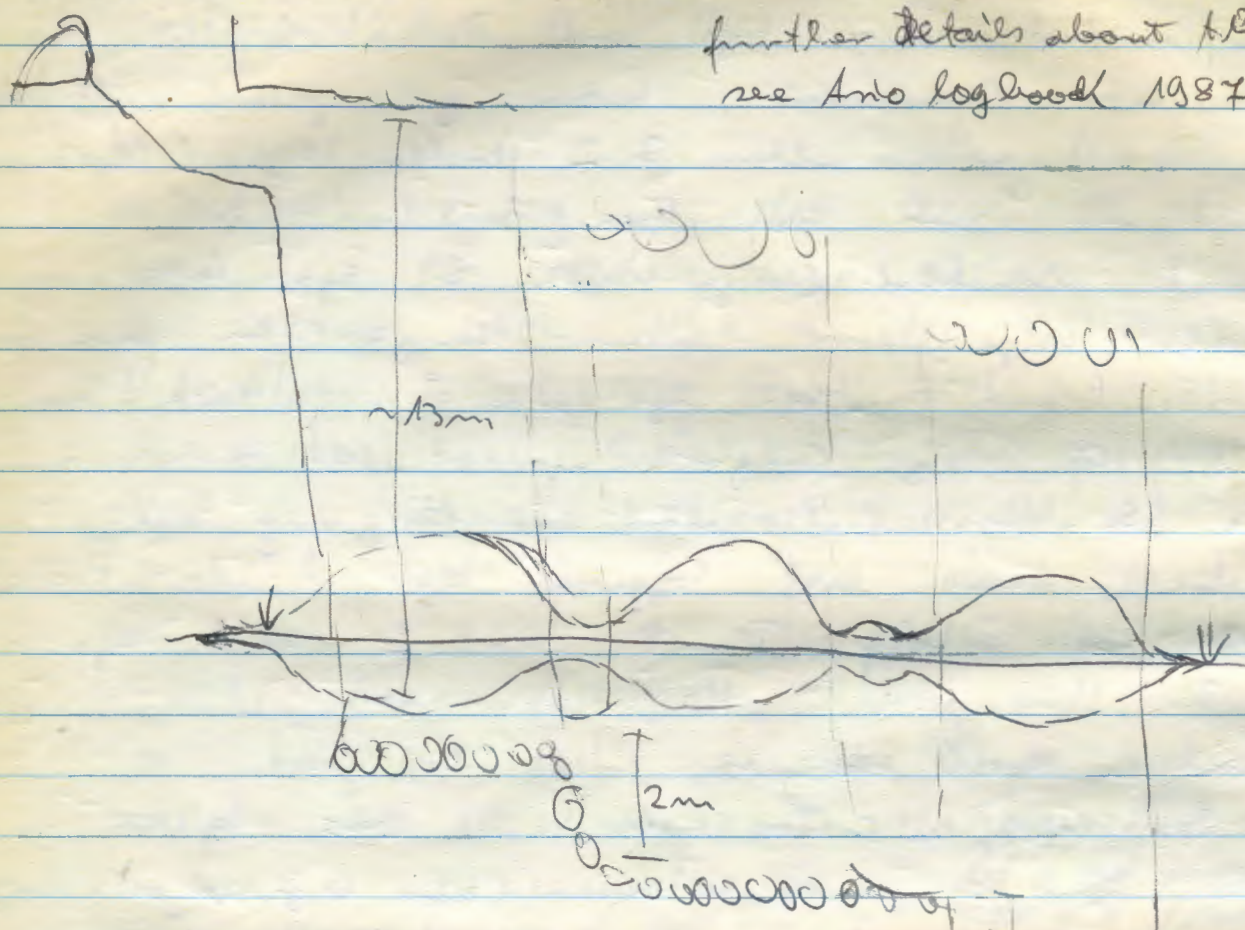 further details about
see Ario logbook 1987
~13m
2m